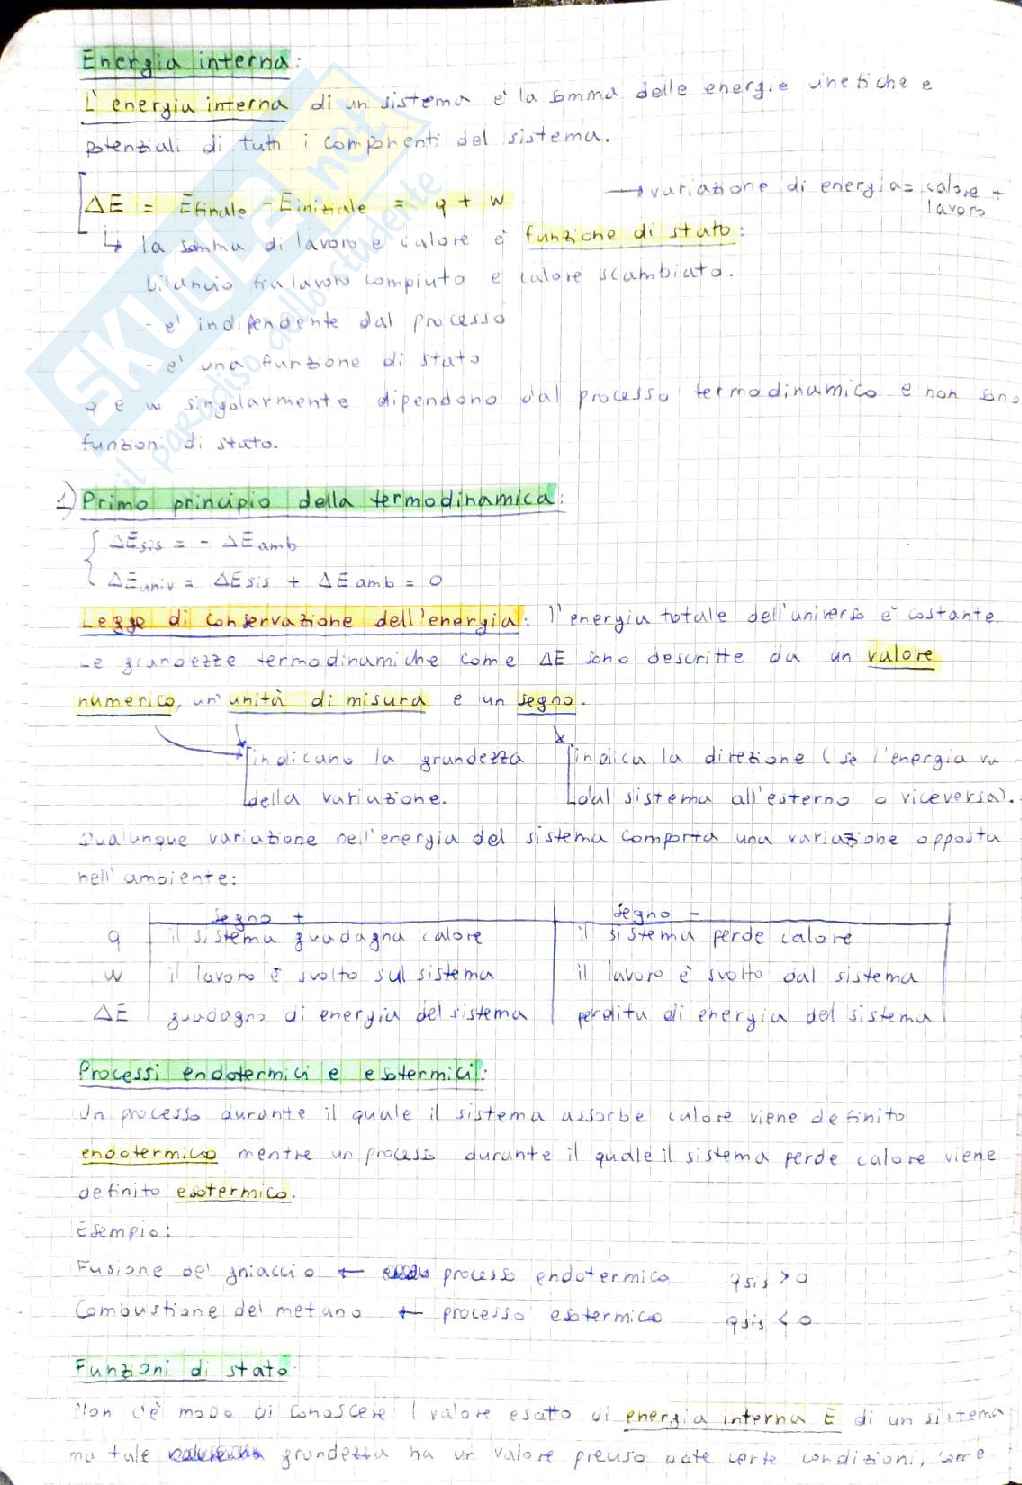 Energia interna:
L'energia interna di un sistema è la somma delle energie cinetiche e
potenziali di tutti i componenti del sistema.
ΔE = Efinale - Einiziale = q + w → variazione di energia = calore +
lavoro
↳ la somma di lavoro e calore è funzione di stato:
bilancio tra lavoro compiuto e calore scambiato.
- è indipendente dal processo
- è una funzione di stato
q e w singolarmente dipendono dal processo termodinamico e non sono
funzioni di stato.
1) Primo principio della termodinamica:
ΔEsis = - ΔEamb
ΔEuniv = ΔEsis + ΔEamb = 0
Legge di conservazione dell'energia: l'energia totale dell'universo è costante
Le grandezze termodinamiche come ΔE sono descritte da un valore
numerico, un'unità di misura e un segno.
indicano la grandezza indica la direzione (se l'energia va
della variazione. dal sistema all'esterno o viceversa).
Qualunque variazione nell'energia del sistema comporta una variazione opposta
nell'ambiente:
segno + segno -
q il sistema guadagna calore il sistema perde calore
w il lavoro è svolto sul sistema il lavoro è svolto dal sistema
ΔE guadagno di energia del sistema perdita di energia del sistema
Processi endotermici e esotermici:
Un processo durante il quale il sistema assorbe calore viene definito
endotermico mentre un processo durante il quale il sistema perde calore viene
definito esotermico.
Esempio:
Fusione del ghiaccio ← processo endotermico qsis > 0
Combustione del metano ← processo esotermico qsis < 0
Funzioni di stato
Non c'è modo di conoscere l valore esato di energia interna E di un sistema
ma tale grandezza ha un valore preciso date certe condizioni, come
SKUOLA.net
il paradiso dello studente